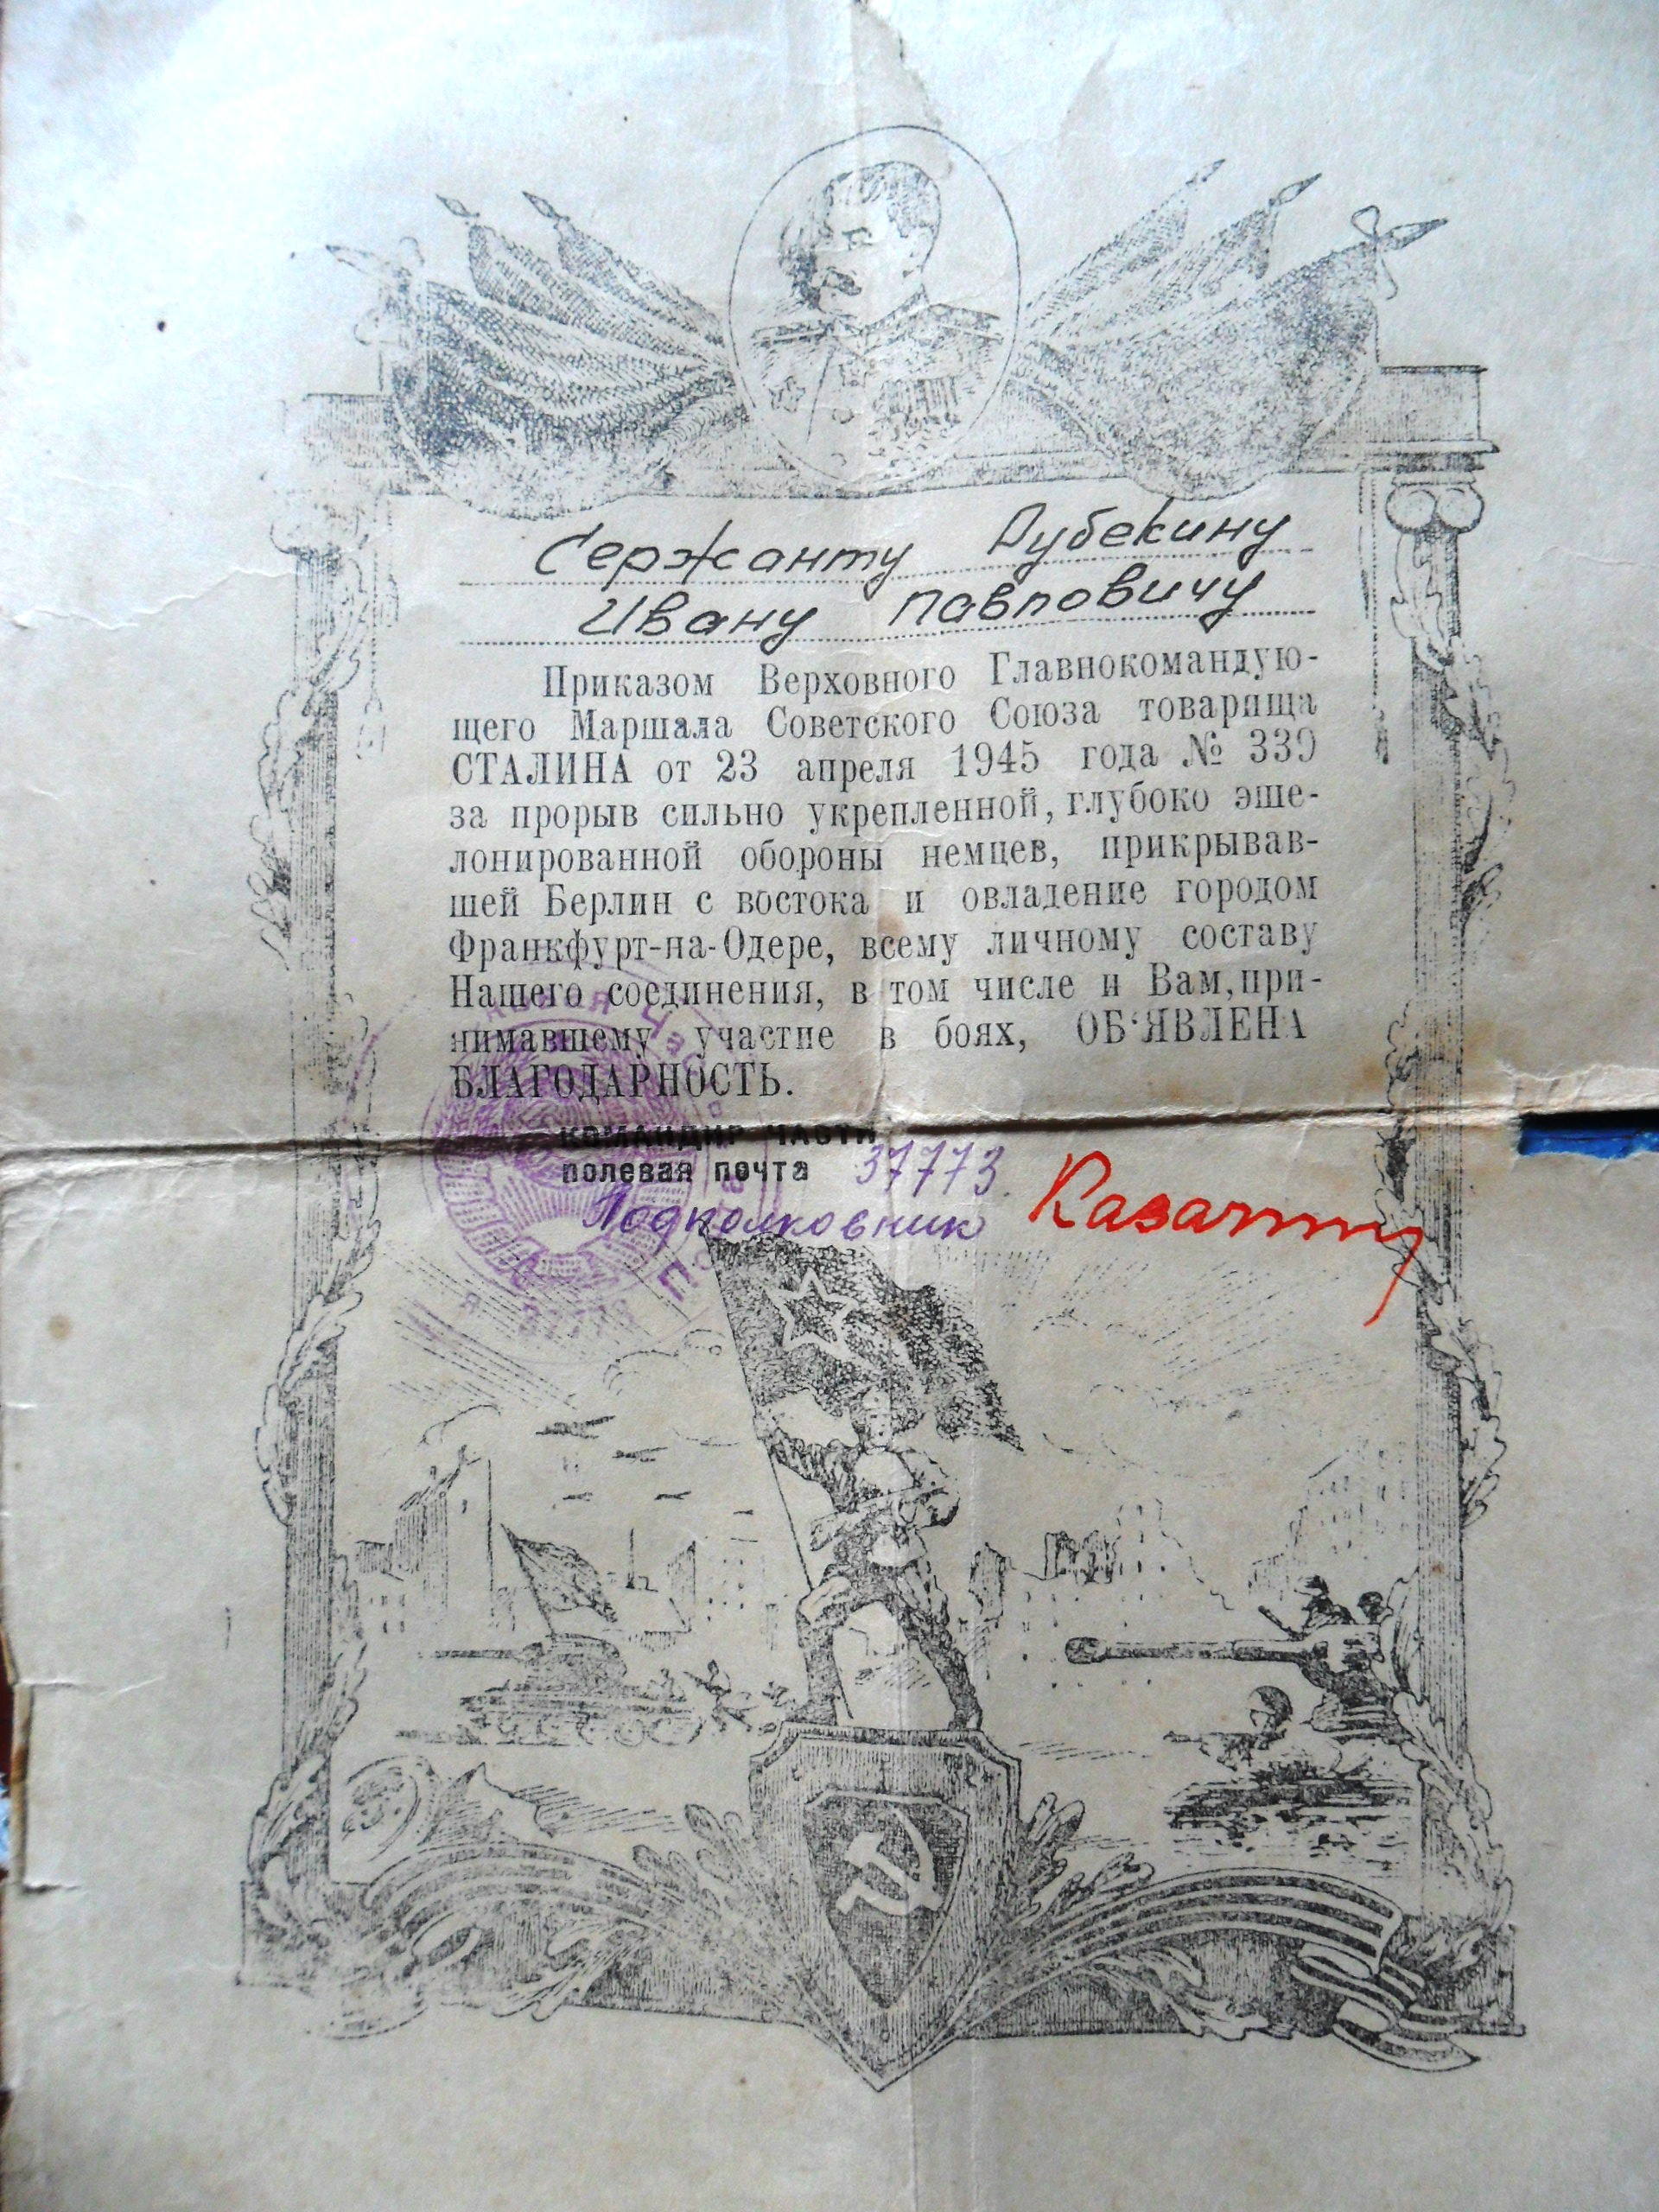 Сержанту Дубекину
Ивану Павловичу
Приказом Верховного Главнокомандую-
щего Маршала Советского Союза товарища
СТАЛИНА от 23 апреля 1945 года № 339
за прорыв сильно укрепленной, глубоко эше-
лонированной обороны немцев, прикрывав-
шей Берлин с востока и овладение городом
Франкфурт-на-Одере, всему личному составу
Нашего соединения, в том числе и Вам, при-
нимавшему участие в боях, ОБ'ЯВЛЕНА
БЛАГОДАРНОСТЬ.
КОМАНДИР ЧАСТИ
полевая почта 37773
Подполковник